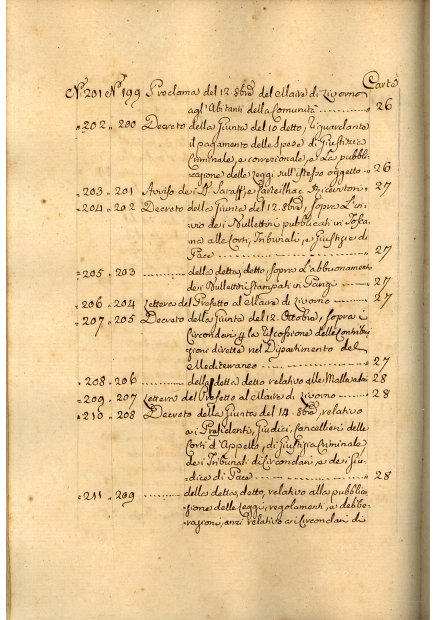 Carte
N.º 201 N.º 199 Proclama del 12. 8bre del Maire di Livorno
agl'Abitanti della Comunità ............ " 26
" 202 " 200 Decreto della Giunta del 10 detto, riguardante
il pagamento delle Spese di Giustizia
Criminale, e correzionale, e la pubbli=
cazione delle Leggi sull'istesso oggetto " 26
" 203 " 201 Avviso dei D. e " 27
" 204 " 202 Decreto della Giunta del 12. 8bre, sopra l'in=
vio dei Bullettini pubblicati in Tosca=
na alle Corti, Tribunali, e Giustizie di
Pace ............ " 27
" 205 " 203 ............ della detta, detto, sopra l'abbuonamento
dei Bullettini stampati in Parigi ...... " 27
" 206 " 204 Lettera del Prefetto al Maire di Livorno ...... " 27
" 207 " 205 Decreto della Giunta del 12. Ottobre, sopra i
Circondari la riscossione delle Contribu=
zioni dirette nel Dipartimento del
Mediterraneo ............ " 27
" 208 " 206 ............ della detta detto relativo alle 28
" 209 " 207 Lettera del Prefetto al Maire di Livorno ...... " 28
" 210 " 208 Decreto della Giunta del 14. 8bre, relativo
ai Presidenti, Giudici, Cancellieri delle
Corti d'Appello, di Giustizia Criminale
dei Tribunali di Circondari, e dei Giu=
dice di Pace ............ " 28
" 211 " 209 ............ della detta, detto, relativo alla pubblica=
zione delle Leggi, regolamenti, e delibe=
razioni, anzi relativo ai Circondari di